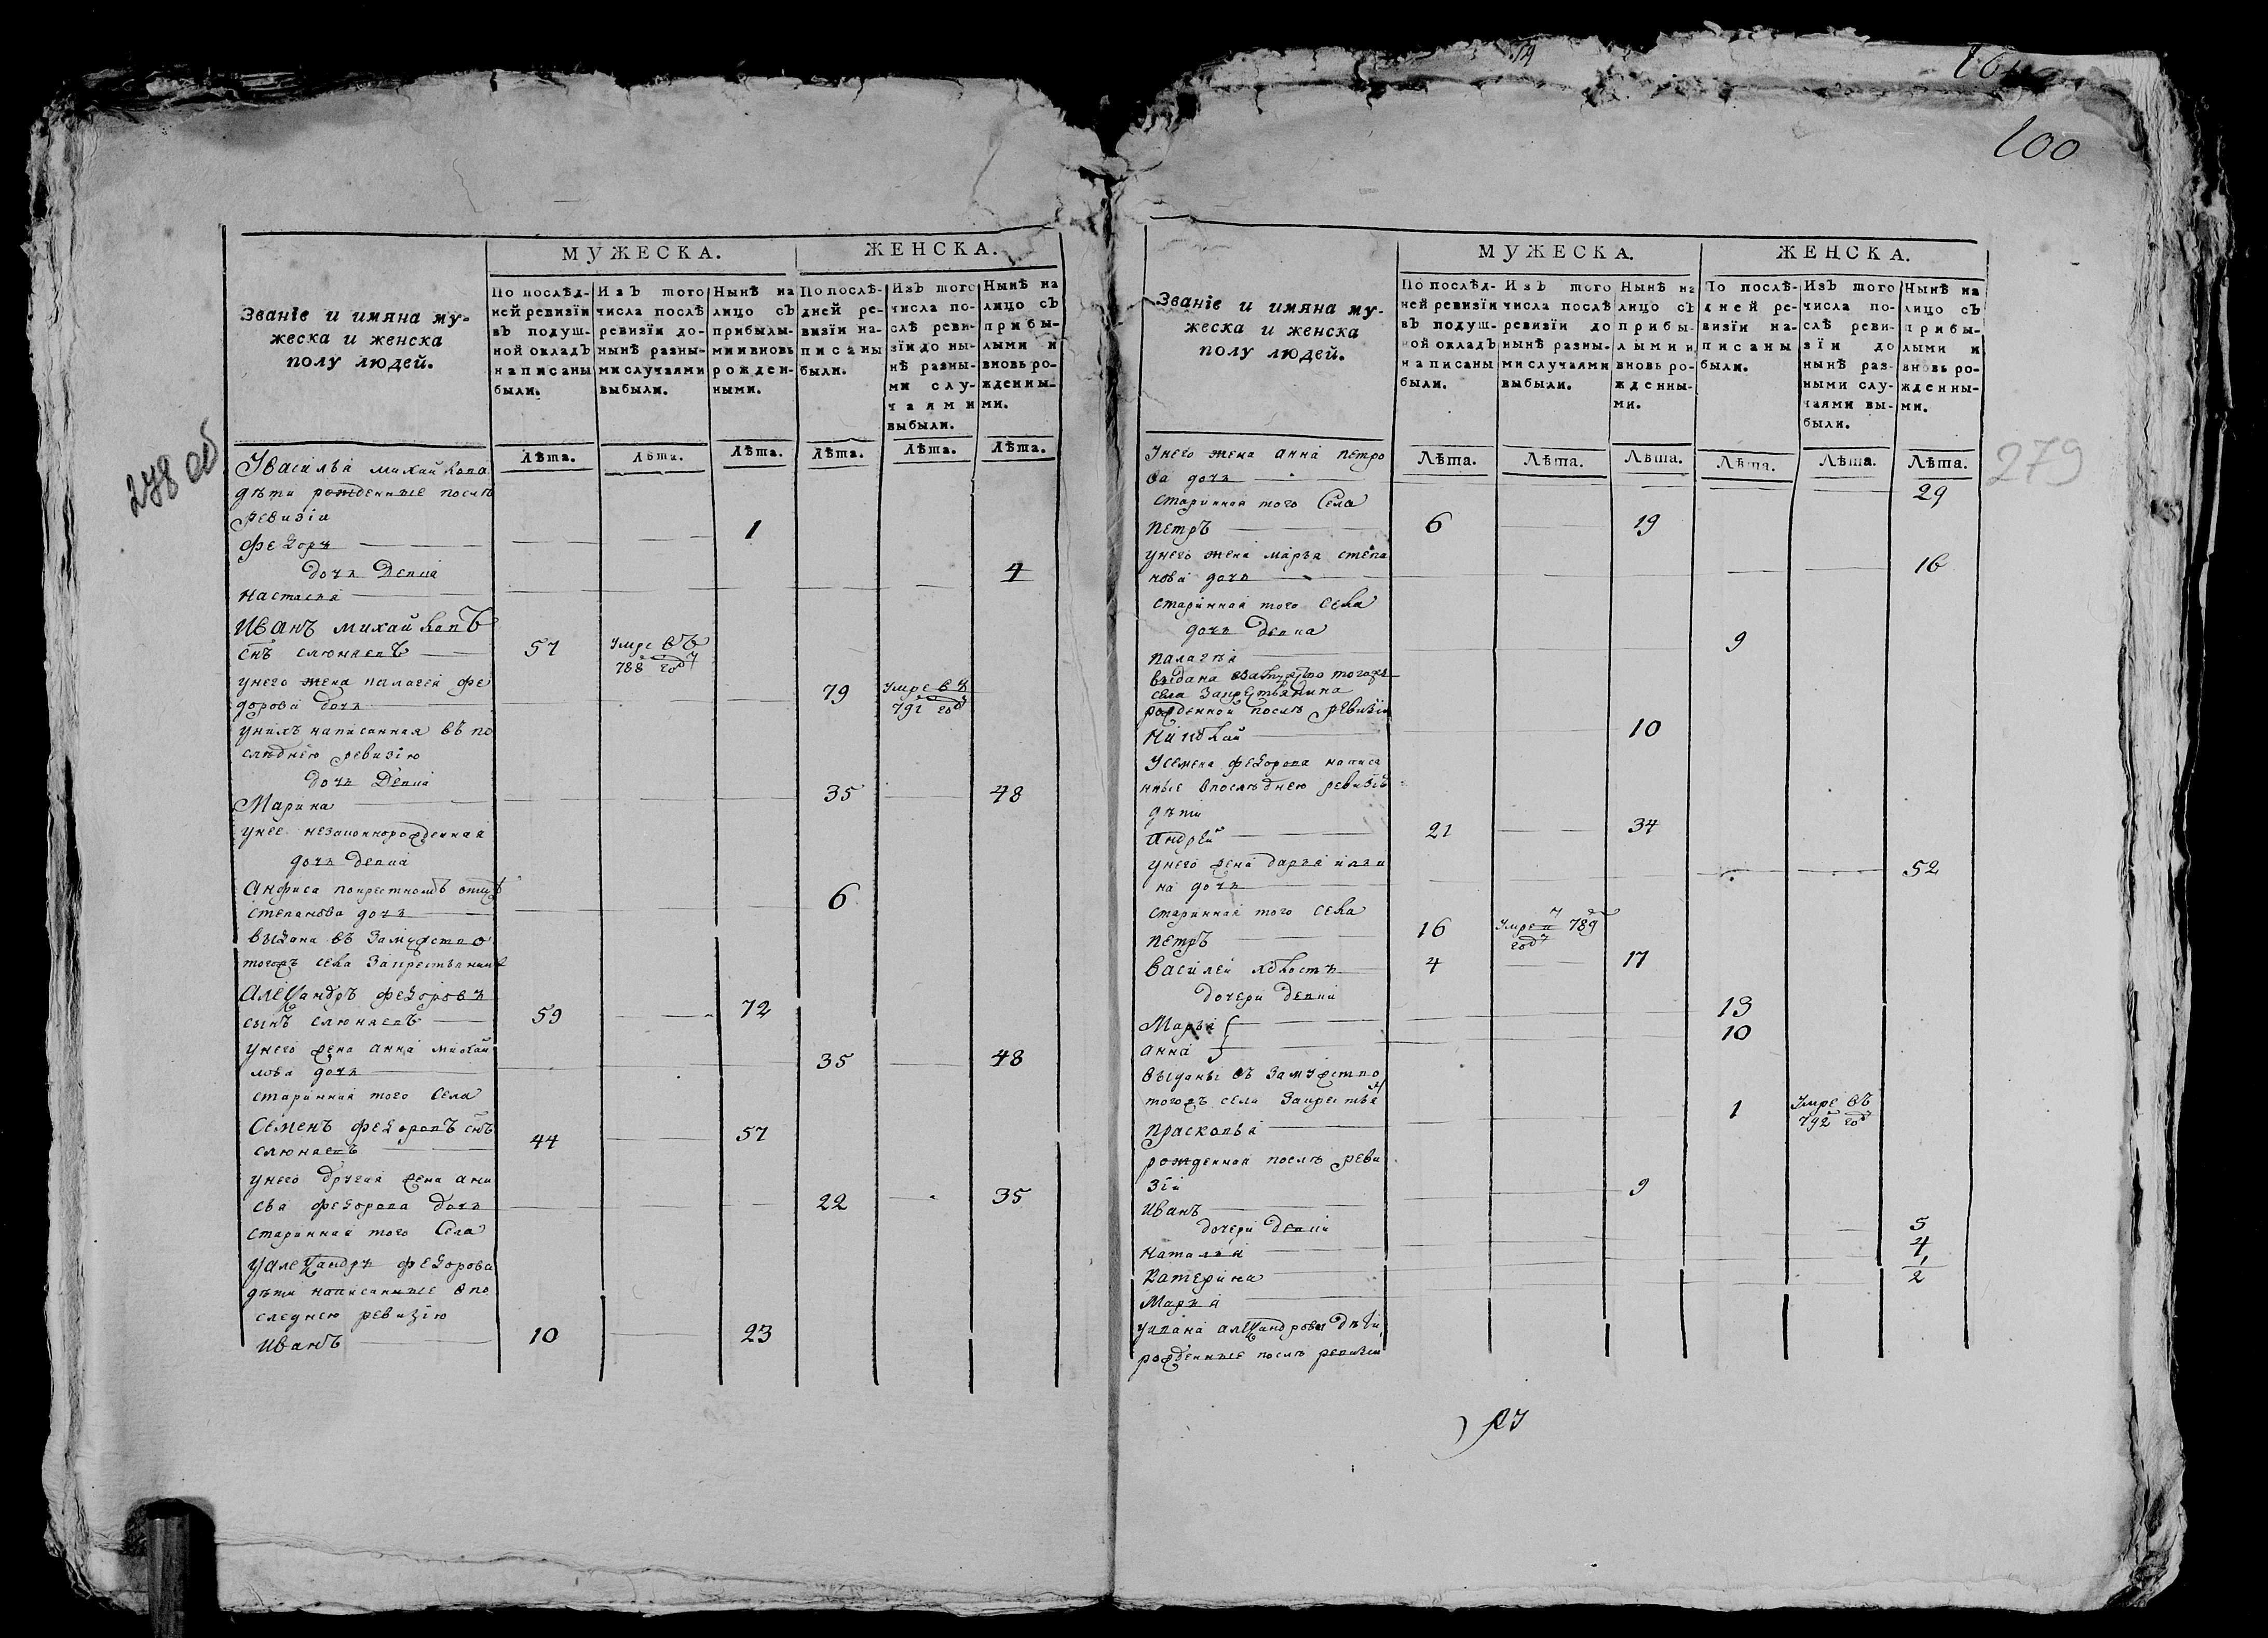 278 об
МУЖЕСКА. ЖЕНСКА.
Званїе и имяна му-
жеска и женска
полу людей.
По послѣд-
ней ревизїи
въ подуш-
ной окладъ
написаны
были.
Изъ того
числа послѣ
ревизїи до-
нынѣ разны-
ми случаями
выбыли.
Нынѣ на
лицо съ
прибылы-
ми и вновь
рожден-
ными.
По послѣ-
дней ре-
визїи на-
писаны
были.
Изъ того
числа по-
слѣ реви-
зїи до ны-
нѣ разны-
ми слу-
чаями
выбыли.
Нынѣ на
лицо съ
прибы-
лыми и
вновь ро-
жденны-
ми.
Лѣта. Лѣта. Лѣта. Лѣта. Лѣта. Лѣта.
У василья михайлова
дѣти рожденные послѣ
ревизіи
Федоръ 1
дочь девка
Настасья 4
Иванъ михайловъ
снъ слюняевъ 57 Умре въ
788 году
унего жена палагея фе
дорова дочь 79 Умре въ
791 году
унихъ написанная въ по
слѣднею ревизію
дочь девка
Марина 35 48
унее незаконнорожденная
дочь девка
Анфиса покрестному отцу
степанова дочь 6
выдана въ замужство
тогожъ села закрестьянина
Александръ федоровъ
сынъ слюняевъ 59 72
унего жена анна михай
лова дочь 35 48
старинная того села
Семенъ федоровъ снъ
слюняевъ 44 57
унего другая жена ани
сья федорова дочь 22 35
старинная того села
Уалександръ федорова
дѣти написанные впо
следнею ревизію
Иванъ 10 23
100
279
МУЖЕСКА. ЖЕНСКА.
Званїе и имяна му-
жеска и женска
полу людей.
По послѣд-
ней ревизїи
въ подуш-
ной окладъ
написаны
были.
Изъ того
числа послѣ
ревизїи до
нынѣ разны-
ми случаями
выбыли.
Нынѣ на
лицо съ
прибы-
лыми и
вновь ро-
жденны-
ми.
По послѣ-
дней ре-
визїи на-
писаны
были.
Изъ того
числа по-
слѣ реви-
зїи до
нынѣ раз-
ными слу-
чаями вы-
были.
Нынѣ на
лицо съ
прибы-
лыми и
вновь ро-
жденны-
ми.
Лѣта. Лѣта. Лѣта. Лѣта. Лѣта. Лѣта.
Унего жена анна петро
ва дочь 29
старинная того села
Петръ 6 19
унего жена марья степа
нова дочь 16
старинная того села
дочь девка
палагѣя 9
выдана взамужство тогожъ
села закрестьянина
рожденной послѣ ревизіи
Николай 10
Усемена федорова написа
нные впослѣднею ревизію
дѣти
Андрей 21 34
унего жена дарья ильи
на дочь 52
старинная того села
Петръ 16 Умре в 789
году
Василей холостъ 4 17
дочери девки
Марья 13
анна 10
выданы въ замужство
тогожъ села закрестья
Прасковья 1 Умре въ
792 году
рожденной послѣ реви
зіи
Иванъ 9
дочери девки
Наталья 5
Катерина 4
Марья 1/2
Уивана александрова дѣти
рожденные послѣ ревизіи